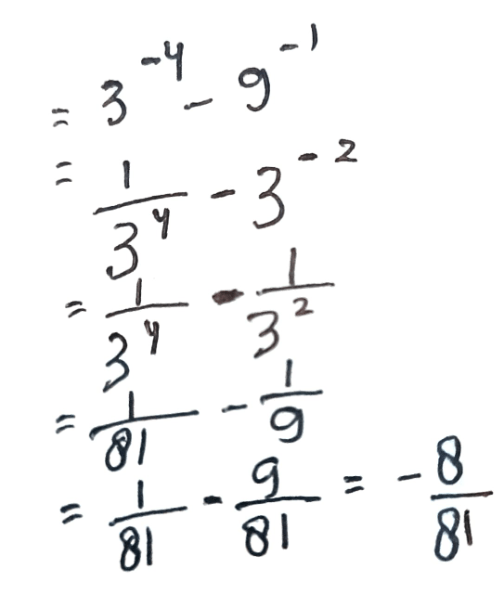 = 3^{-4} - 9^{-1}
= \frac{1}{3^4} - 3^{-2}
= \frac{1}{3^4} - \frac{1}{3^2}
= \frac{1}{81} - \frac{1}{9}
= \frac{1}{81} - \frac{9}{81} = -\frac{8}{81}